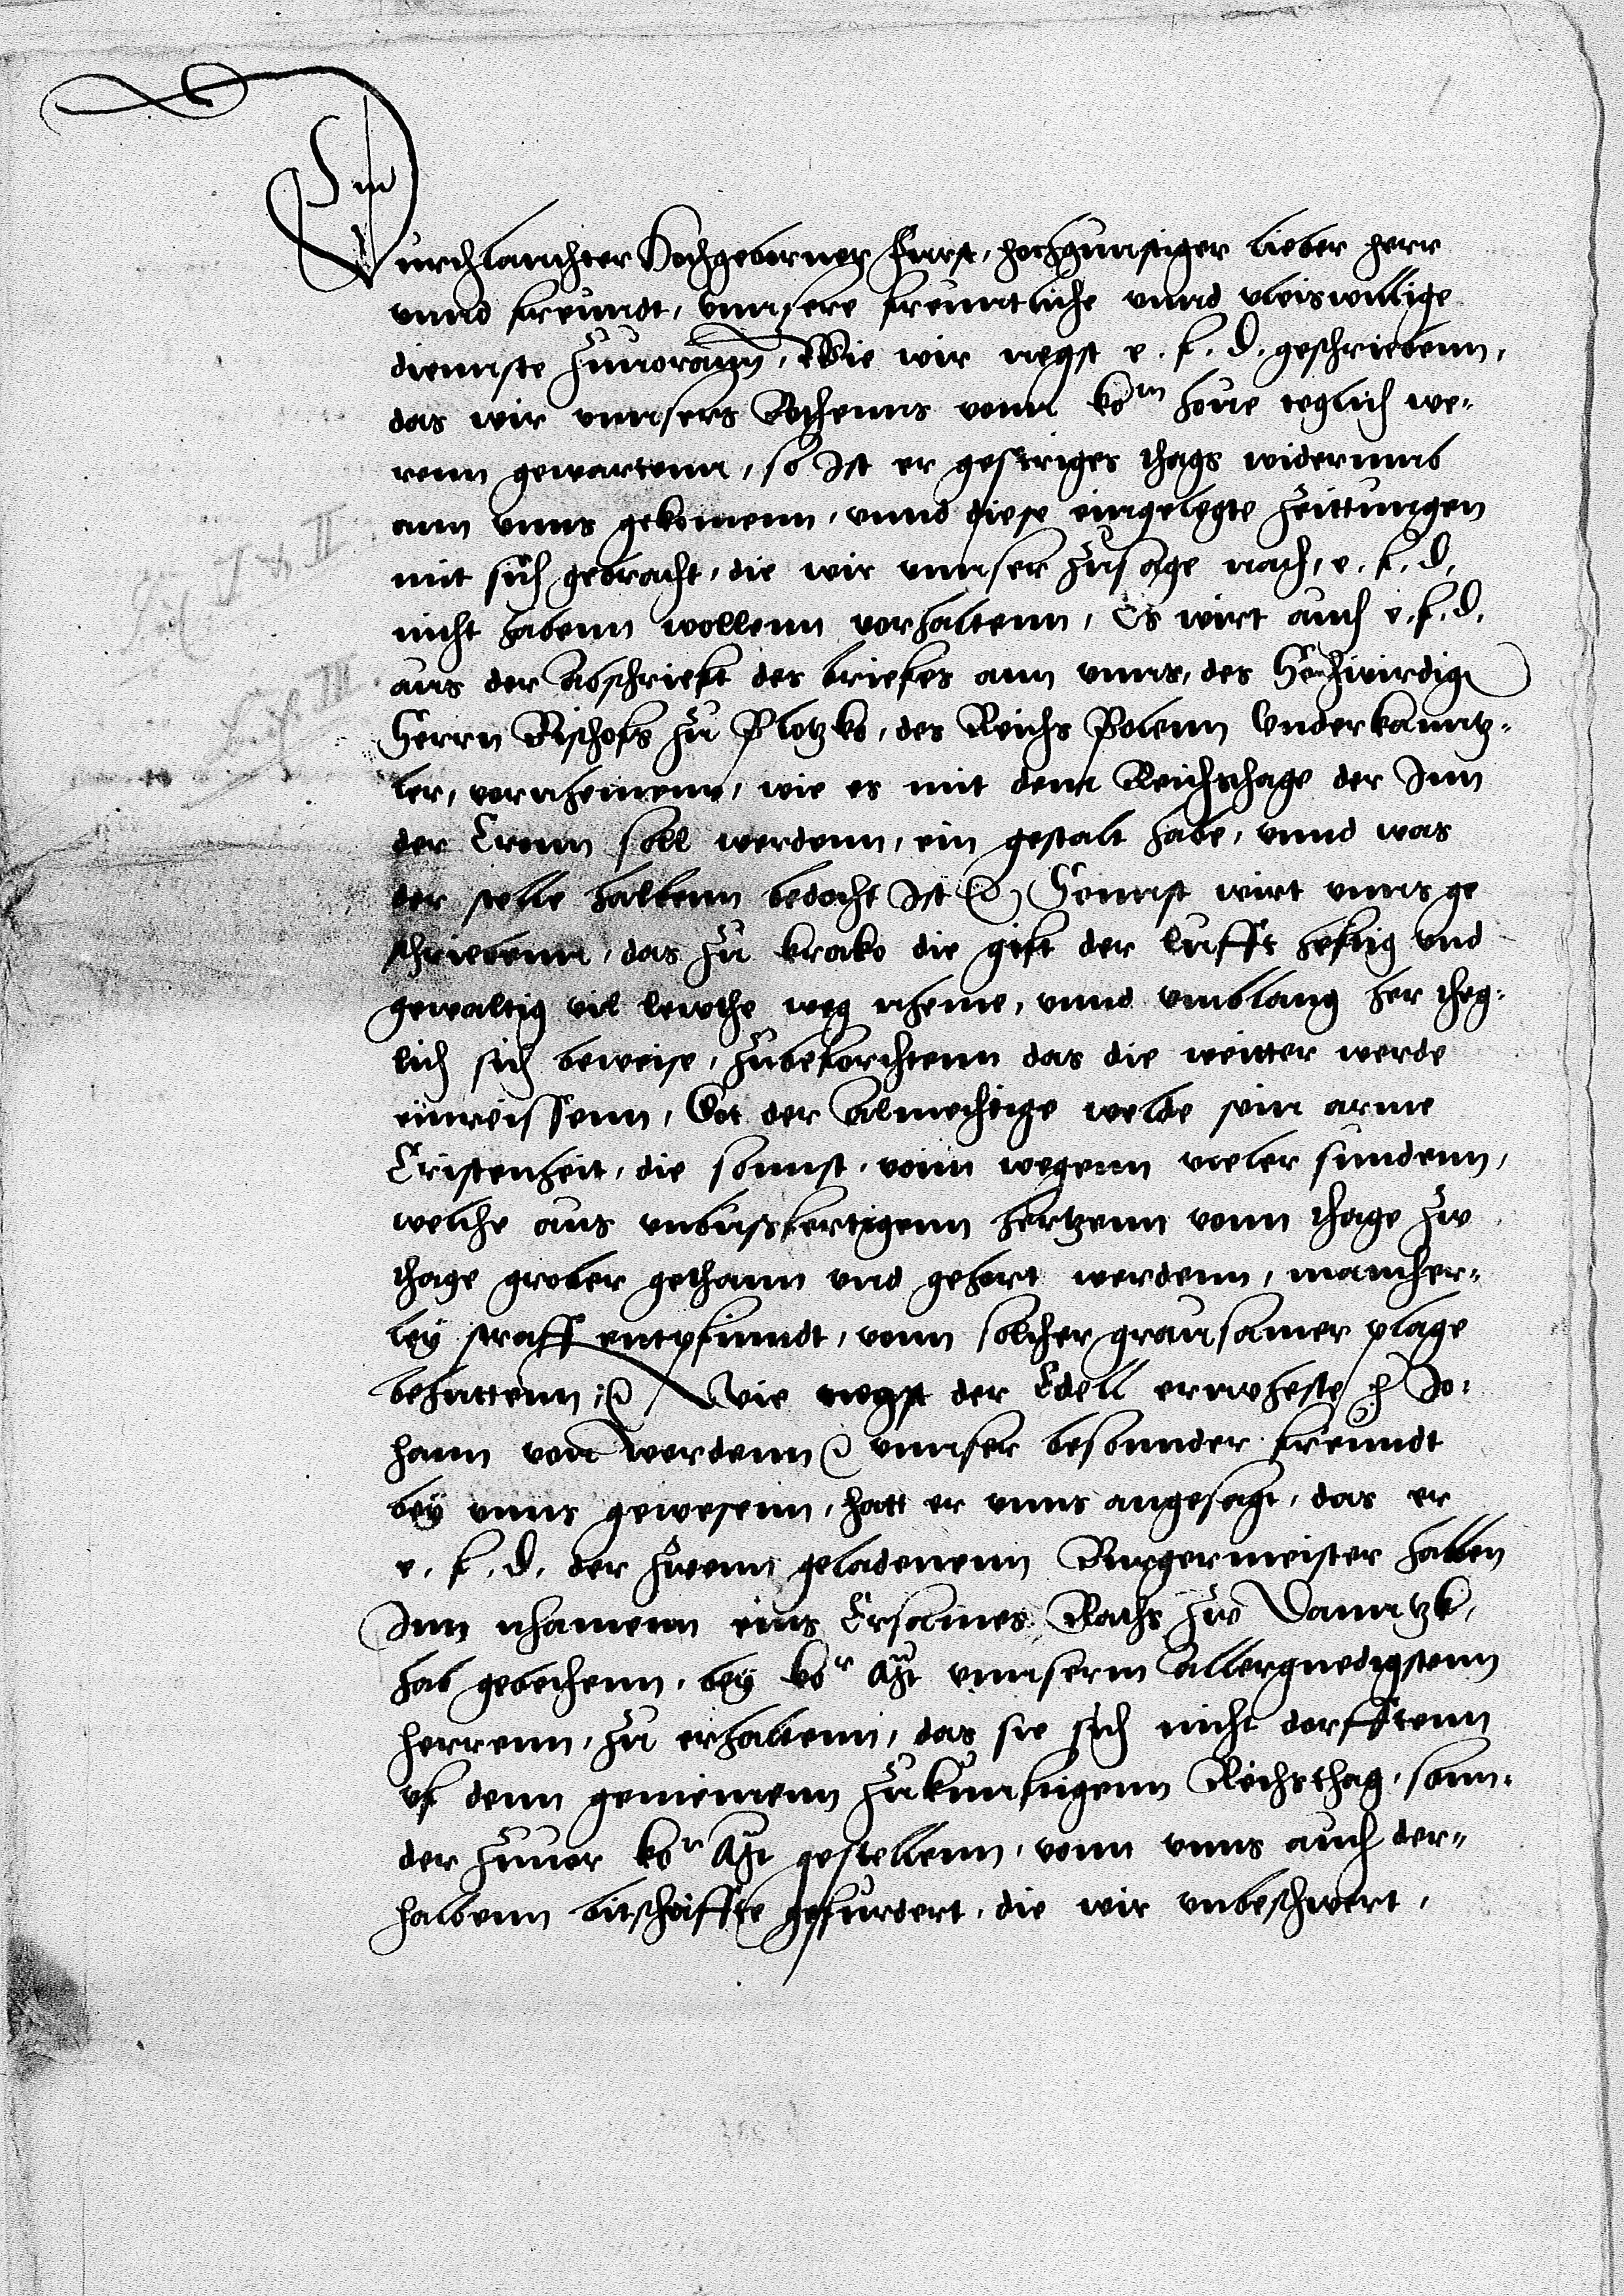 Durchlauchter Hochgeborner Furst, hochgunstiger lieber herr
vnnd freundt, vnnsere freuntliche vnnd vleiswillige
diennste zuuorann, Wie wir negst e. f. d. geschriebenn,
das wir vnnsers Bothenns vonn ko͏ᵐ houe teglich we-
renn gewartenn, so Ist er gestriges thags widerumb
ann vnns gekomenn, vnnd diese eingelegte zeittungen
mit sich gebracht, die wir vnnser zusage nach, e. f. d.
nicht habenn wollenn vorhaltenn, Es wirt auch e. f. d.
aus der Abschriefft des briefes ann vnns, des Hochwirdig
Herrn Bischofs zu Plotzko, des Reichs Polenn Vnderkanntz-
ler, vornhemenn, wie es mit dem Reichsthage der Inn
der Cronn soll werdenn, ein gestalt habe, vnnd was
der stelle halbenn bedocht Ist Sonnst wirt vnns ge
schriebenn, das zu krako die gift der lufft heftig vnd
gewaltig vil lewthe weg nheme, vnnd vmblang her theg-
lich sich beweise, zubeforchtenn das die weitter werde
einreissenn, Got der Almechtige welde sein arme
Cristenheit, die sonnst, vonn wegenn vieler sundenn,
welche aus vnbusfertigenn hertzenn vonn thage zw
thage grober gethann vnd gehort werdenn, mancher-
ley straff entpfinndt, vonn solcher grausamer plage
behuttenn Wie negst der Edell ernvheste h Jo-
hann von Werdenn vnnser besonnder freundt
bey vnns gewesenn, hatt er vnns angesagt, das er
e. f. d. der zwenn geladenenn Burgermeister halben
Inn nhamenn eins Ersames Raths zw Danntzk,
hab gebethenn, bey ko͏ʳ Mt vnnserm Allergnedigstenn
herrenn, zu erhaltenn, das sie sich nicht dorfftenn
vf denn gemeinenn zukunftigenn Reichsthag, sonn-
der zuuor ko͏ʳ Mt gestellenn, vonn vnns auch der-
halbenn bitschriffte gefurdert, die wir vnbeschwert,